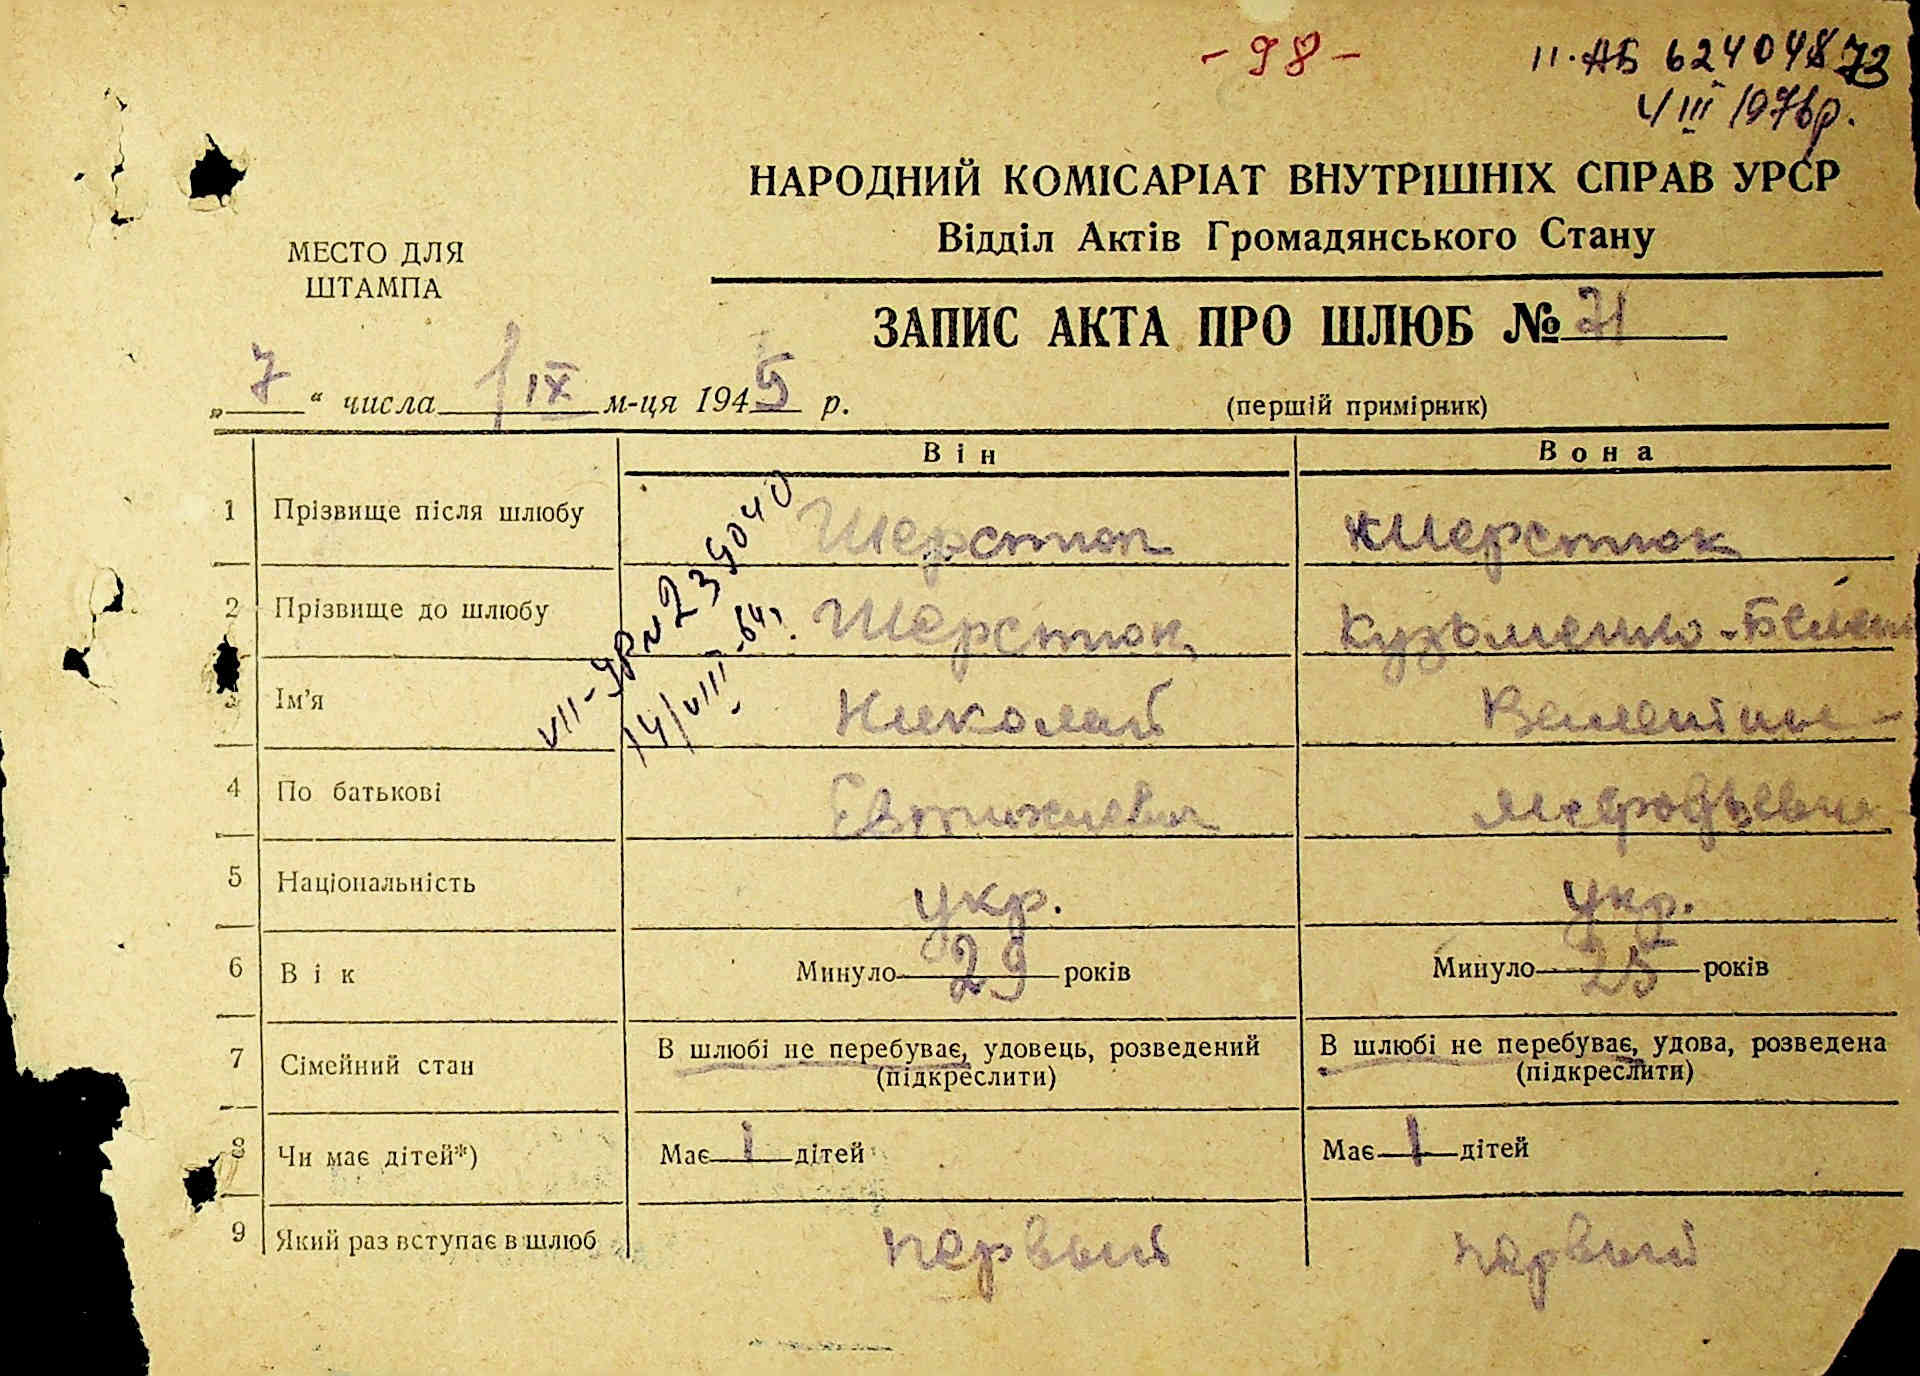 - 98 -
II-АБ 624048 73
4/III 1976р.
НАРОДНИЙ КОМІСАРІАТ ВНУТРІШНІХ СПРАВ УРСР
Відділ Актів Громадянського Стану
МЕСТО ДЛЯ
ШТАМПА
ЗАПИС АКТА ПРО ШЛЮБ № 71
„ 7 “ числа IX м-ця 1945 р.
(перший примірник)
Він Вона
1 Прізвище після шлюбу Шерстюк Шерстюк
2 Прізвище до шлюбу Шерстюк Кузьменко-
VII-УР № 239040
14/VIII-64г.
3 Ім'я Николай Валентина
4 По батькові Евтихиевич Мефодьевна
5 Національність укр. укр.
6 Вік Минуло 29 років Минуло 25 років
7 Сімейний стан В шлюбі не перебуває, удовець, розведений В шлюбі не перебуває, удова, розведена
(підкреслити) (підкреслити)
8 Чи має дітей*) Має 1 дітей Має 1 дітей
9 Який раз вступає в шлюб первый первый